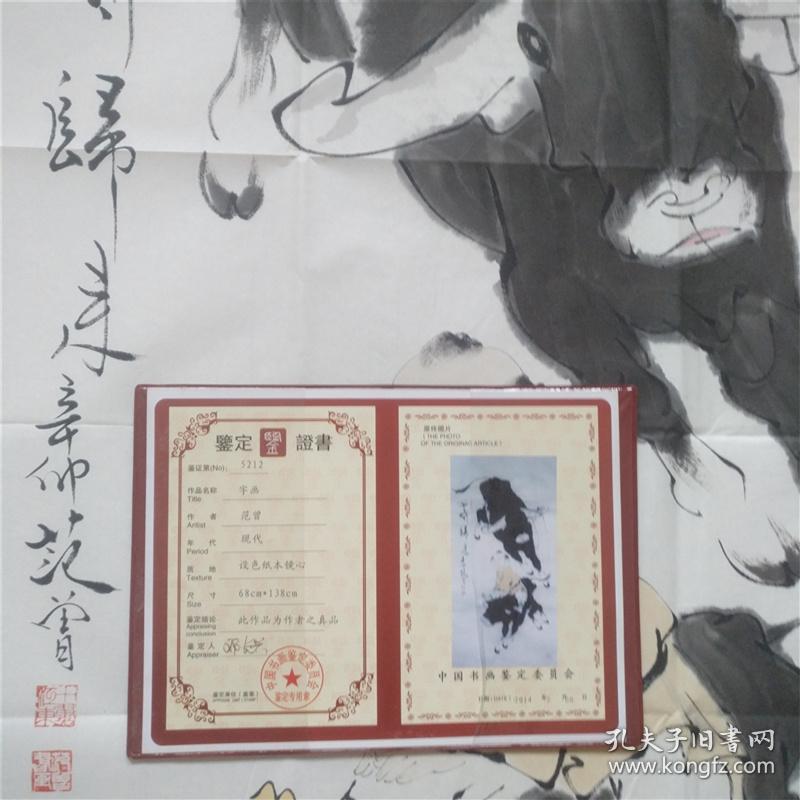 歸
来
辛卯
范曾
鑒定 鑒 證書
鉴证第(No): 5212
作品名称 字画
Title
作者 范曾
Artist
年代 现代
Period
质地 设色纸本镜心
Texture
尺寸 68cm*138cm
Size
鉴定结论 此作品为作者之真品
Appraising
conclusion
鉴定人
Appraiser
中国书画鉴定委员会
鉴定专用章
鉴定单位(盖章)
原件照片
(THE PHOTO
OF THE ORIGINAC ARTICLE)
中国书画鉴定委员会
日期(DATE) 2014 年 月 日
孔夫子旧书网
www.kongfz.com